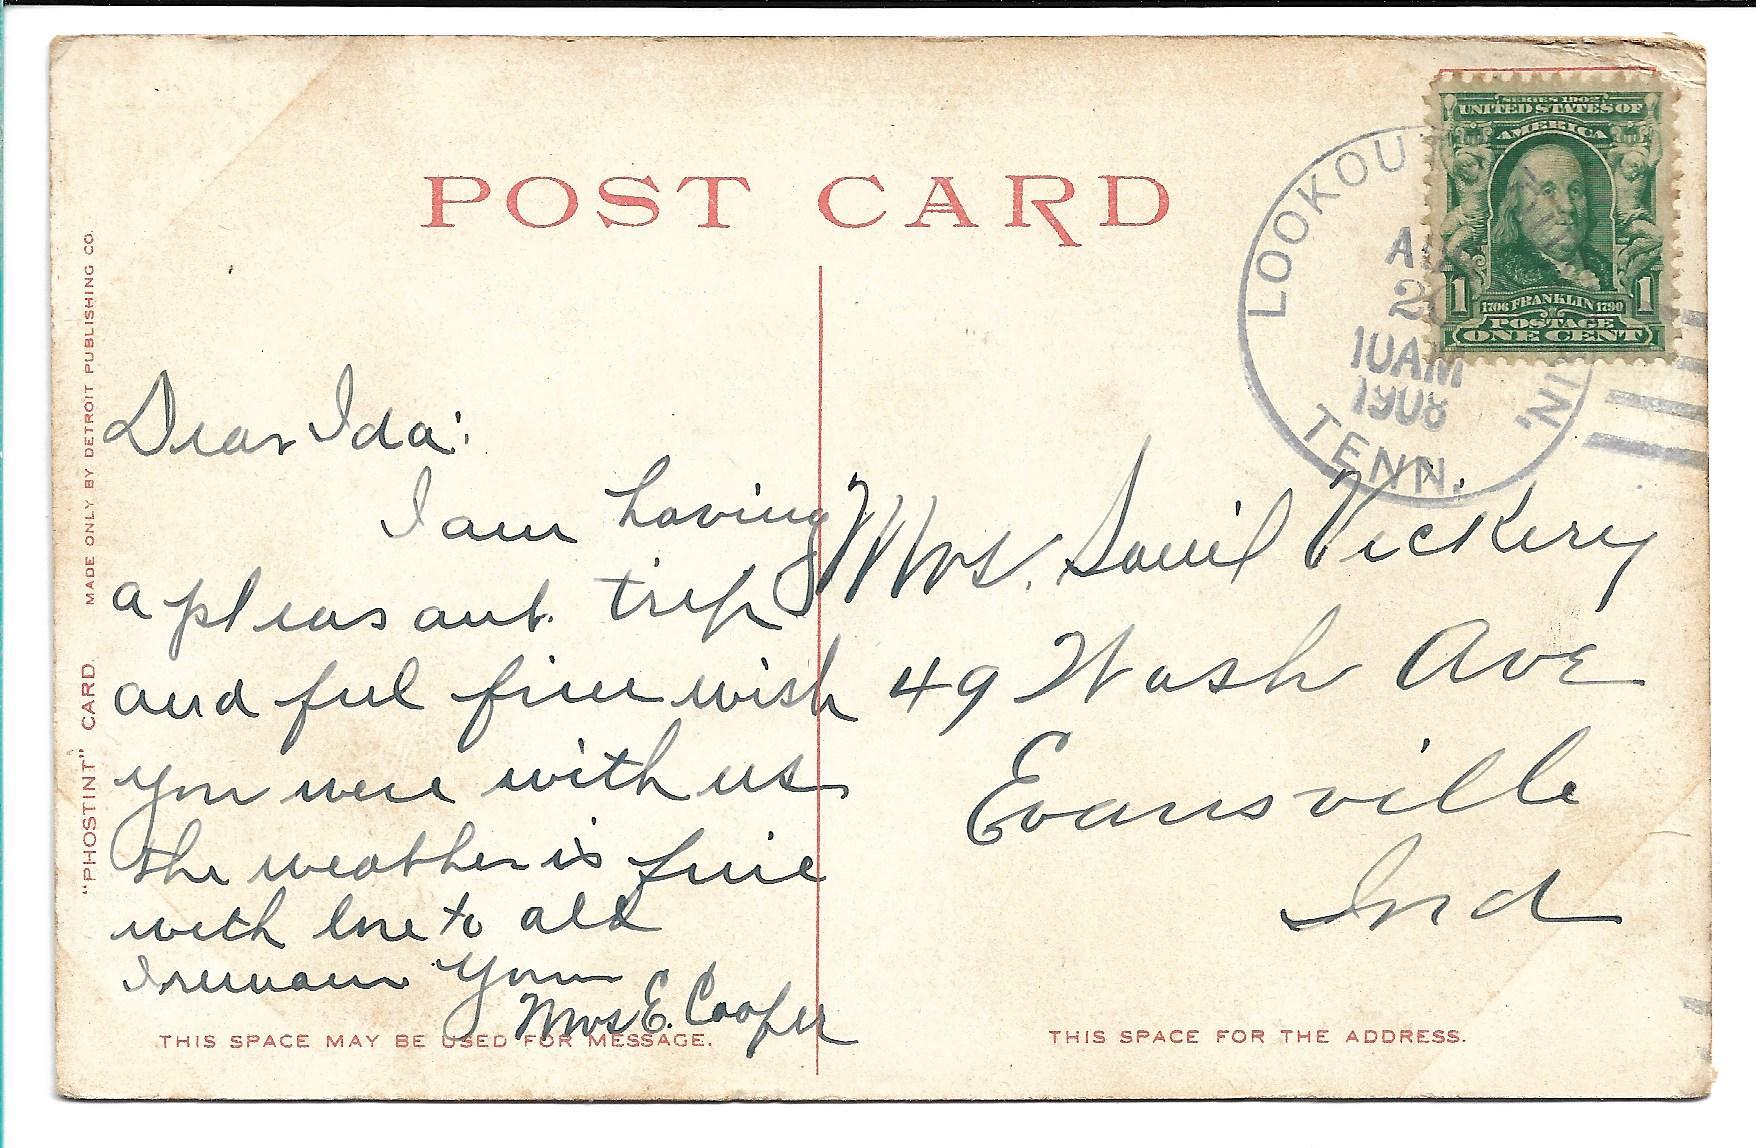 POST CARD
SERIES 1902
UNITED STATES OF
AMERICA
1 1
1706 FRANKLIN 1790
POSTAGE
ONE CENT
LOOKOUT
10AM
1908
TENN.
"PHOSTINT" CARD. MADE ONLY BY DETROIT PUBLISHING CO.
Dear Ida:
I am having
a pleasant trip
and feel fine wish
you were with us
the weather is fine
with love to all
I remain Your
Mrs E. Cooper
Mrs. Vickery
49 Wash Ave
Evansville
Ind
THIS SPACE MAY BE USED FOR MESSAGE.
THIS SPACE FOR THE ADDRESS.